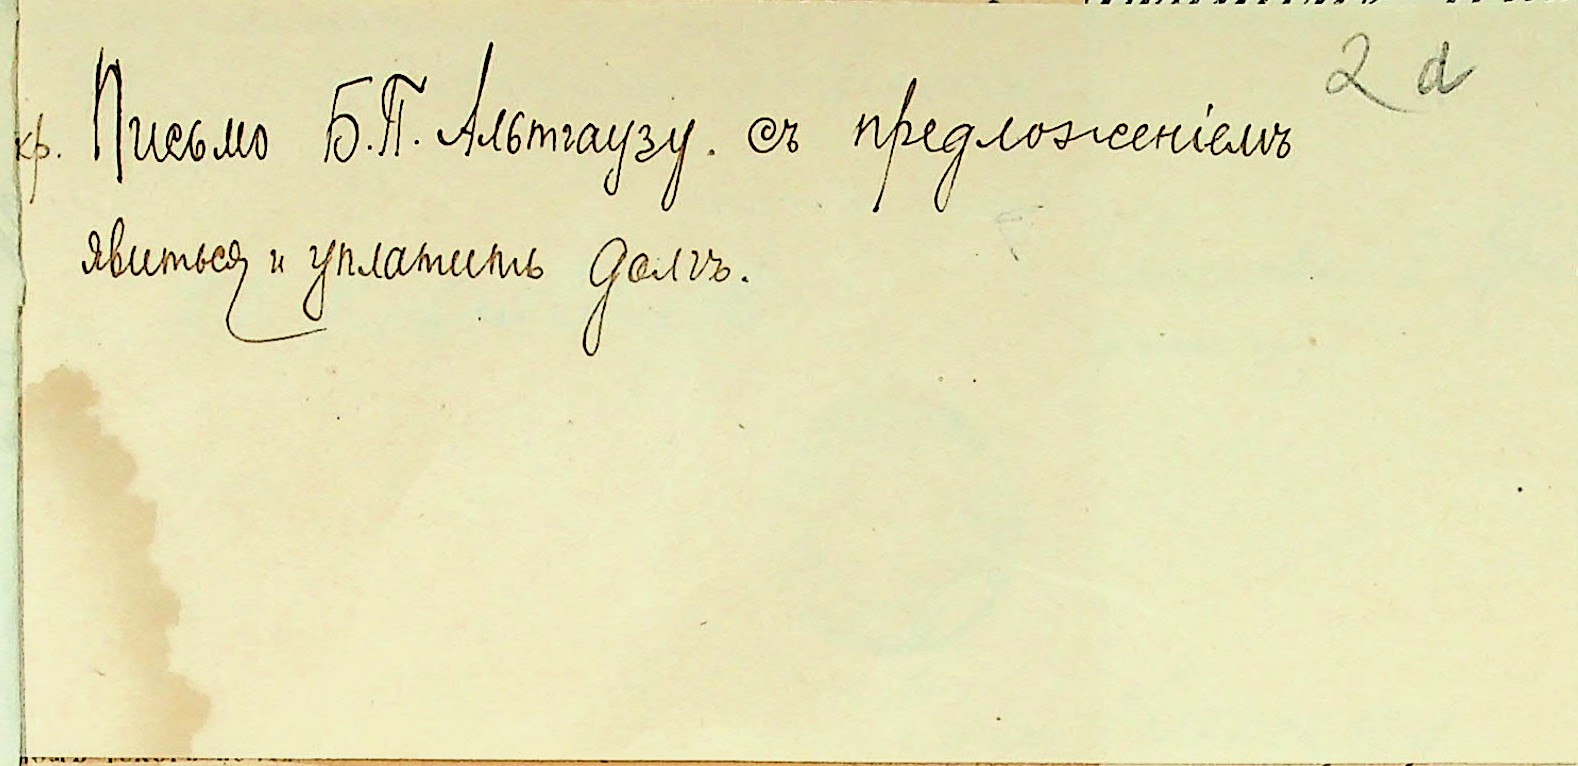 2 d
кр. Письмо Б.П. Альтгаузу. съ предложеніемъ
явиться и уплатить долгъ.